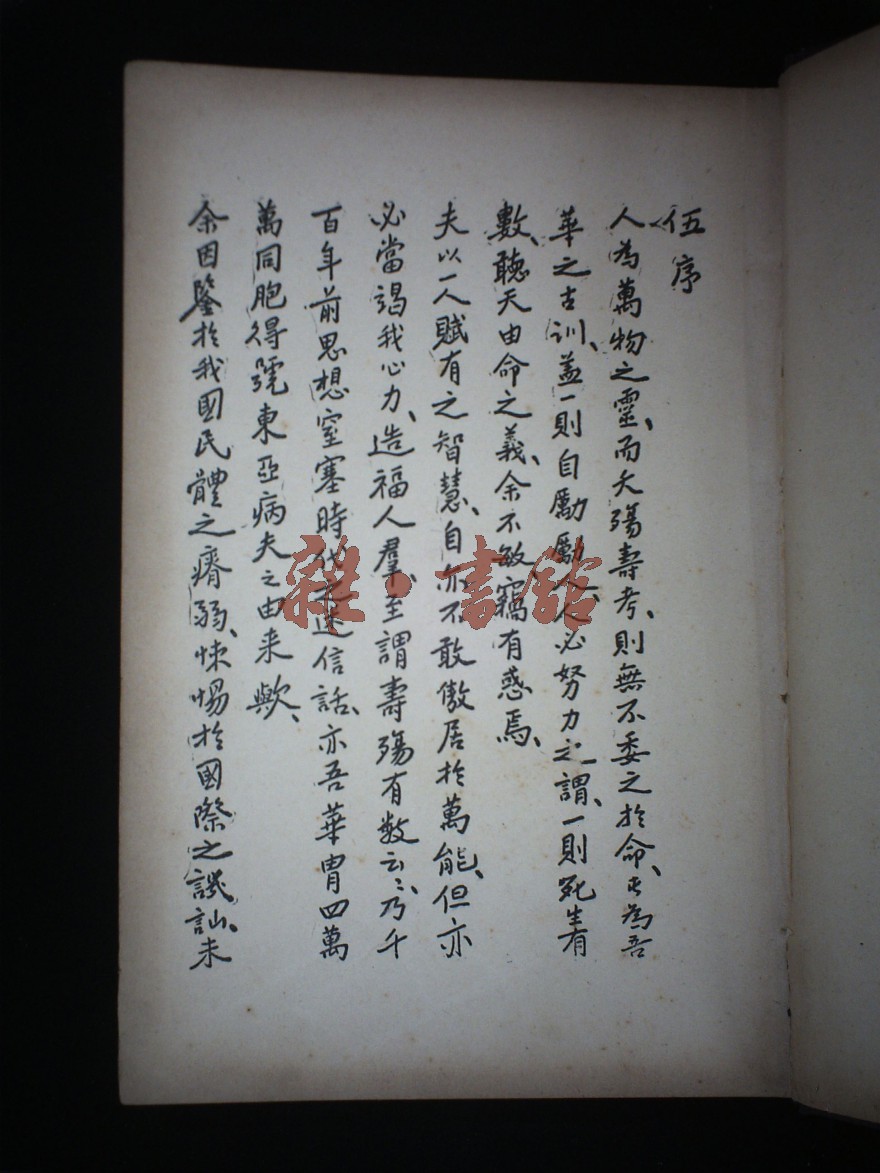 伍序
人為萬物之靈、而夭殤壽考、則無不委之於命、此為吾
華之古訓、蓋一則自勵勵人、人必努力之謂、一則死生有
數、聽天由命之義、余不敏、竊有惑焉、
夫以一人賦有之智慧、自亦不敢傲居於萬能、但亦
必當竭我心力、造福人羣、至謂壽殤有数云云、乃千
百年前思想窒塞時代之迷信話、亦吾華胄四萬
萬同胞得號東亞病夫之由来歟、
余因鑒於我國民體之瘠弱、悚惕於國際之譏訕、未
雜·書館